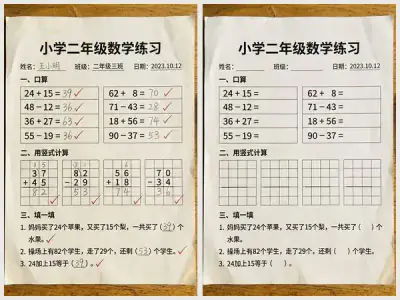 小学二年级数学练习
姓名：王小明 班级：二年级三班 日期：2023.10.12
一、口算
24＋15＝39 62＋ 8＝70
48－12＝36 71－43＝28
36＋27＝63 18＋56＝74
55－19＝36 90－37＝53
二、用竖式计算
37 82 56 70
＋45 －29 ＋18 －34
82 53 74 36
三、填一填
1. 妈妈买了24个苹果，又买了15个梨，一共买了（39）个
水果。
2. 操场上有82个学生，走了29个，还剩（53）个学生。
3. 24加上15等于（39）。
小学二年级数学练习
姓名： 班级： 日期：2023.10.12
一、口算
24＋15＝ 62＋ 8＝
48－12＝ 71－43＝
36＋27＝ 18＋56＝
55－19＝ 90－37＝
二、用竖式计算
三、填一填
1. 妈妈买了24个苹果，又买了15个梨，一共买了（ ）个
水果。
2. 操场上有82个学生，走了29个，还剩（ ）个学生。
3. 24加上15等于（ ）。